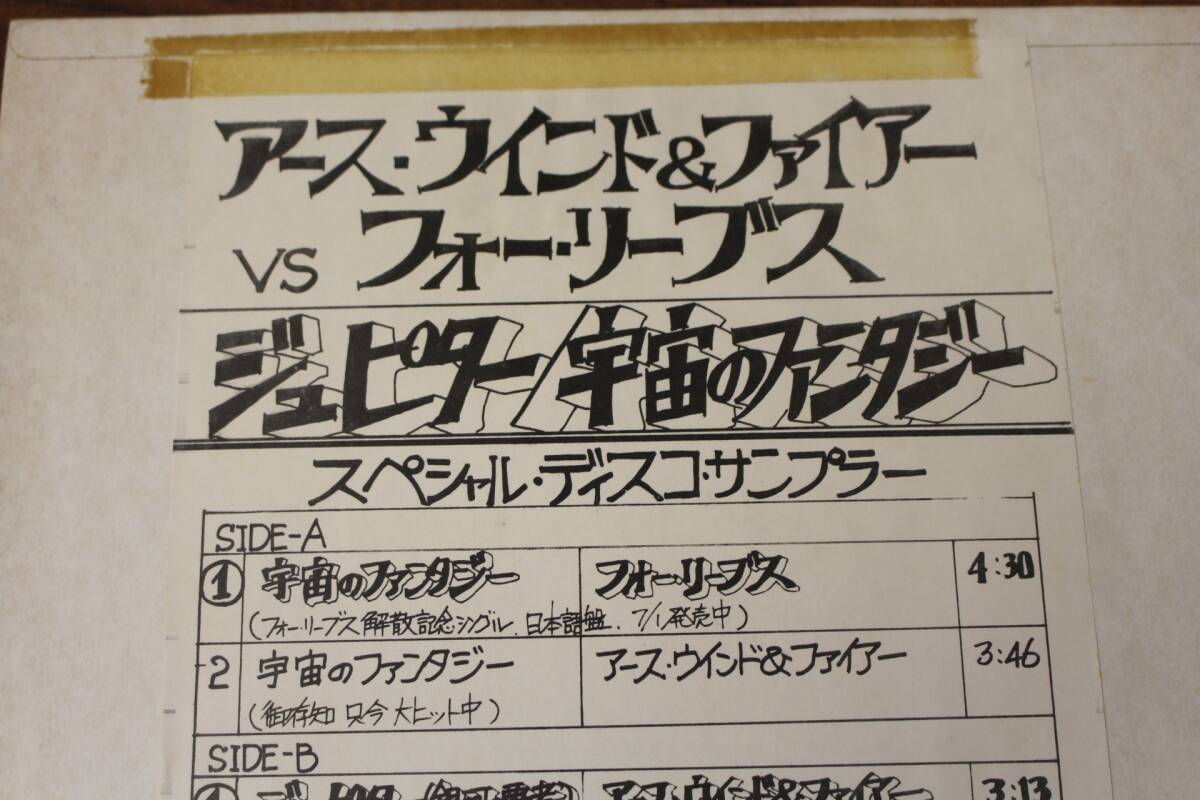 アース・ウインド&ファイアー
VS フォー・リーブス
ジュピター/宇宙のファンタジー
スペシャル・ディスコ・サンプラー
SIDE-A
① 宇宙のファンタジー フォー・リーブス 4:30
(フォー・リーブス解散記念シングル、日本語盤、7/1発売中)
2 宇宙のファンタジー アース・ウインド&ファイアー 3:46
(御存知 只今大ヒット中)
SIDE-B
① ジュピター(銀河の覇者) アース・ウインド&ファイアー 3:13